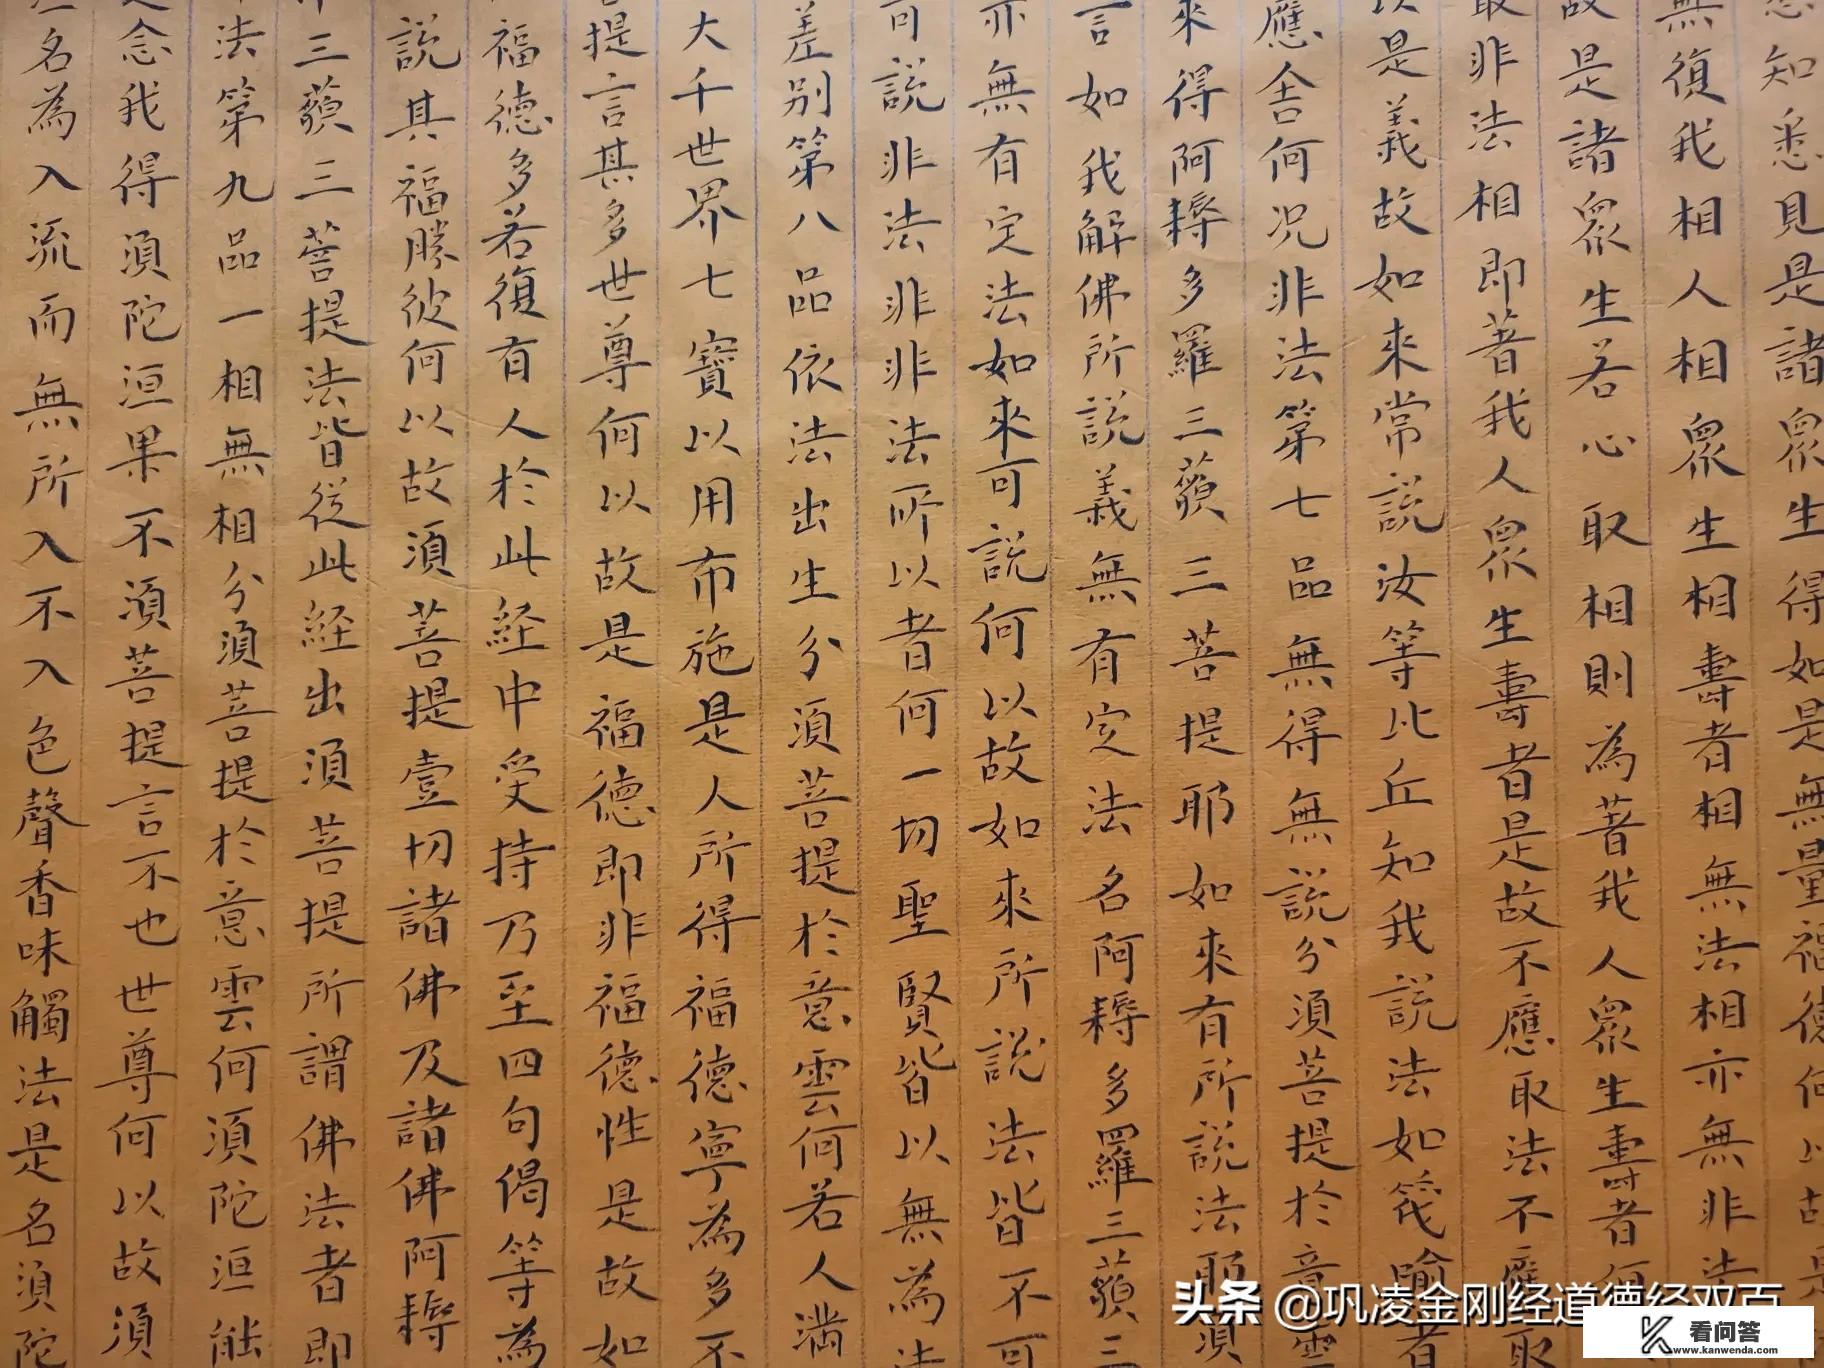 悉知悉見是諸眾生得如是無量福德何以故是
無復我相人相眾生相壽者相無法相亦無非法
故是諸眾生若心取相則為著我人眾生壽者何
取非法相即著我人眾生壽者是故不應取法不應取
以是義故如來常說汝等比丘知我說法如筏喻者
應舍何況非法第七品無得無說分須菩提於意雲
來得阿耨多羅三藐三菩提耶如來有所說法耶須
言如我解佛所說義無有定法名阿耨多羅三藐三
亦無有定法如來可說何以故如來所說法皆不可
可說非法非非法所以者何一切聖賢皆以無為法
差別第八品依法出生分須菩提於意雲何若人滿
大千世界七寶以用布施是人所得福德寧為多不
菩提言其多世尊何以故是福德即非福德性是故如
福德多若復有人於此経中受持乃至四句偈等為
說其福勝彼何以故須菩提壹切諸佛及諸佛阿耨
三藐三菩提法皆從此経出須菩提所謂佛法者即
法第九品一相無相分須菩提於意雲何須陀洹能
念我得須陀洹果不須菩提言不也世尊何以故須
名為入流而無所入不入色聲香味觸法是名須陀
头条 @巩凌金刚经道德经双百
看问答
www.kanwenda.com